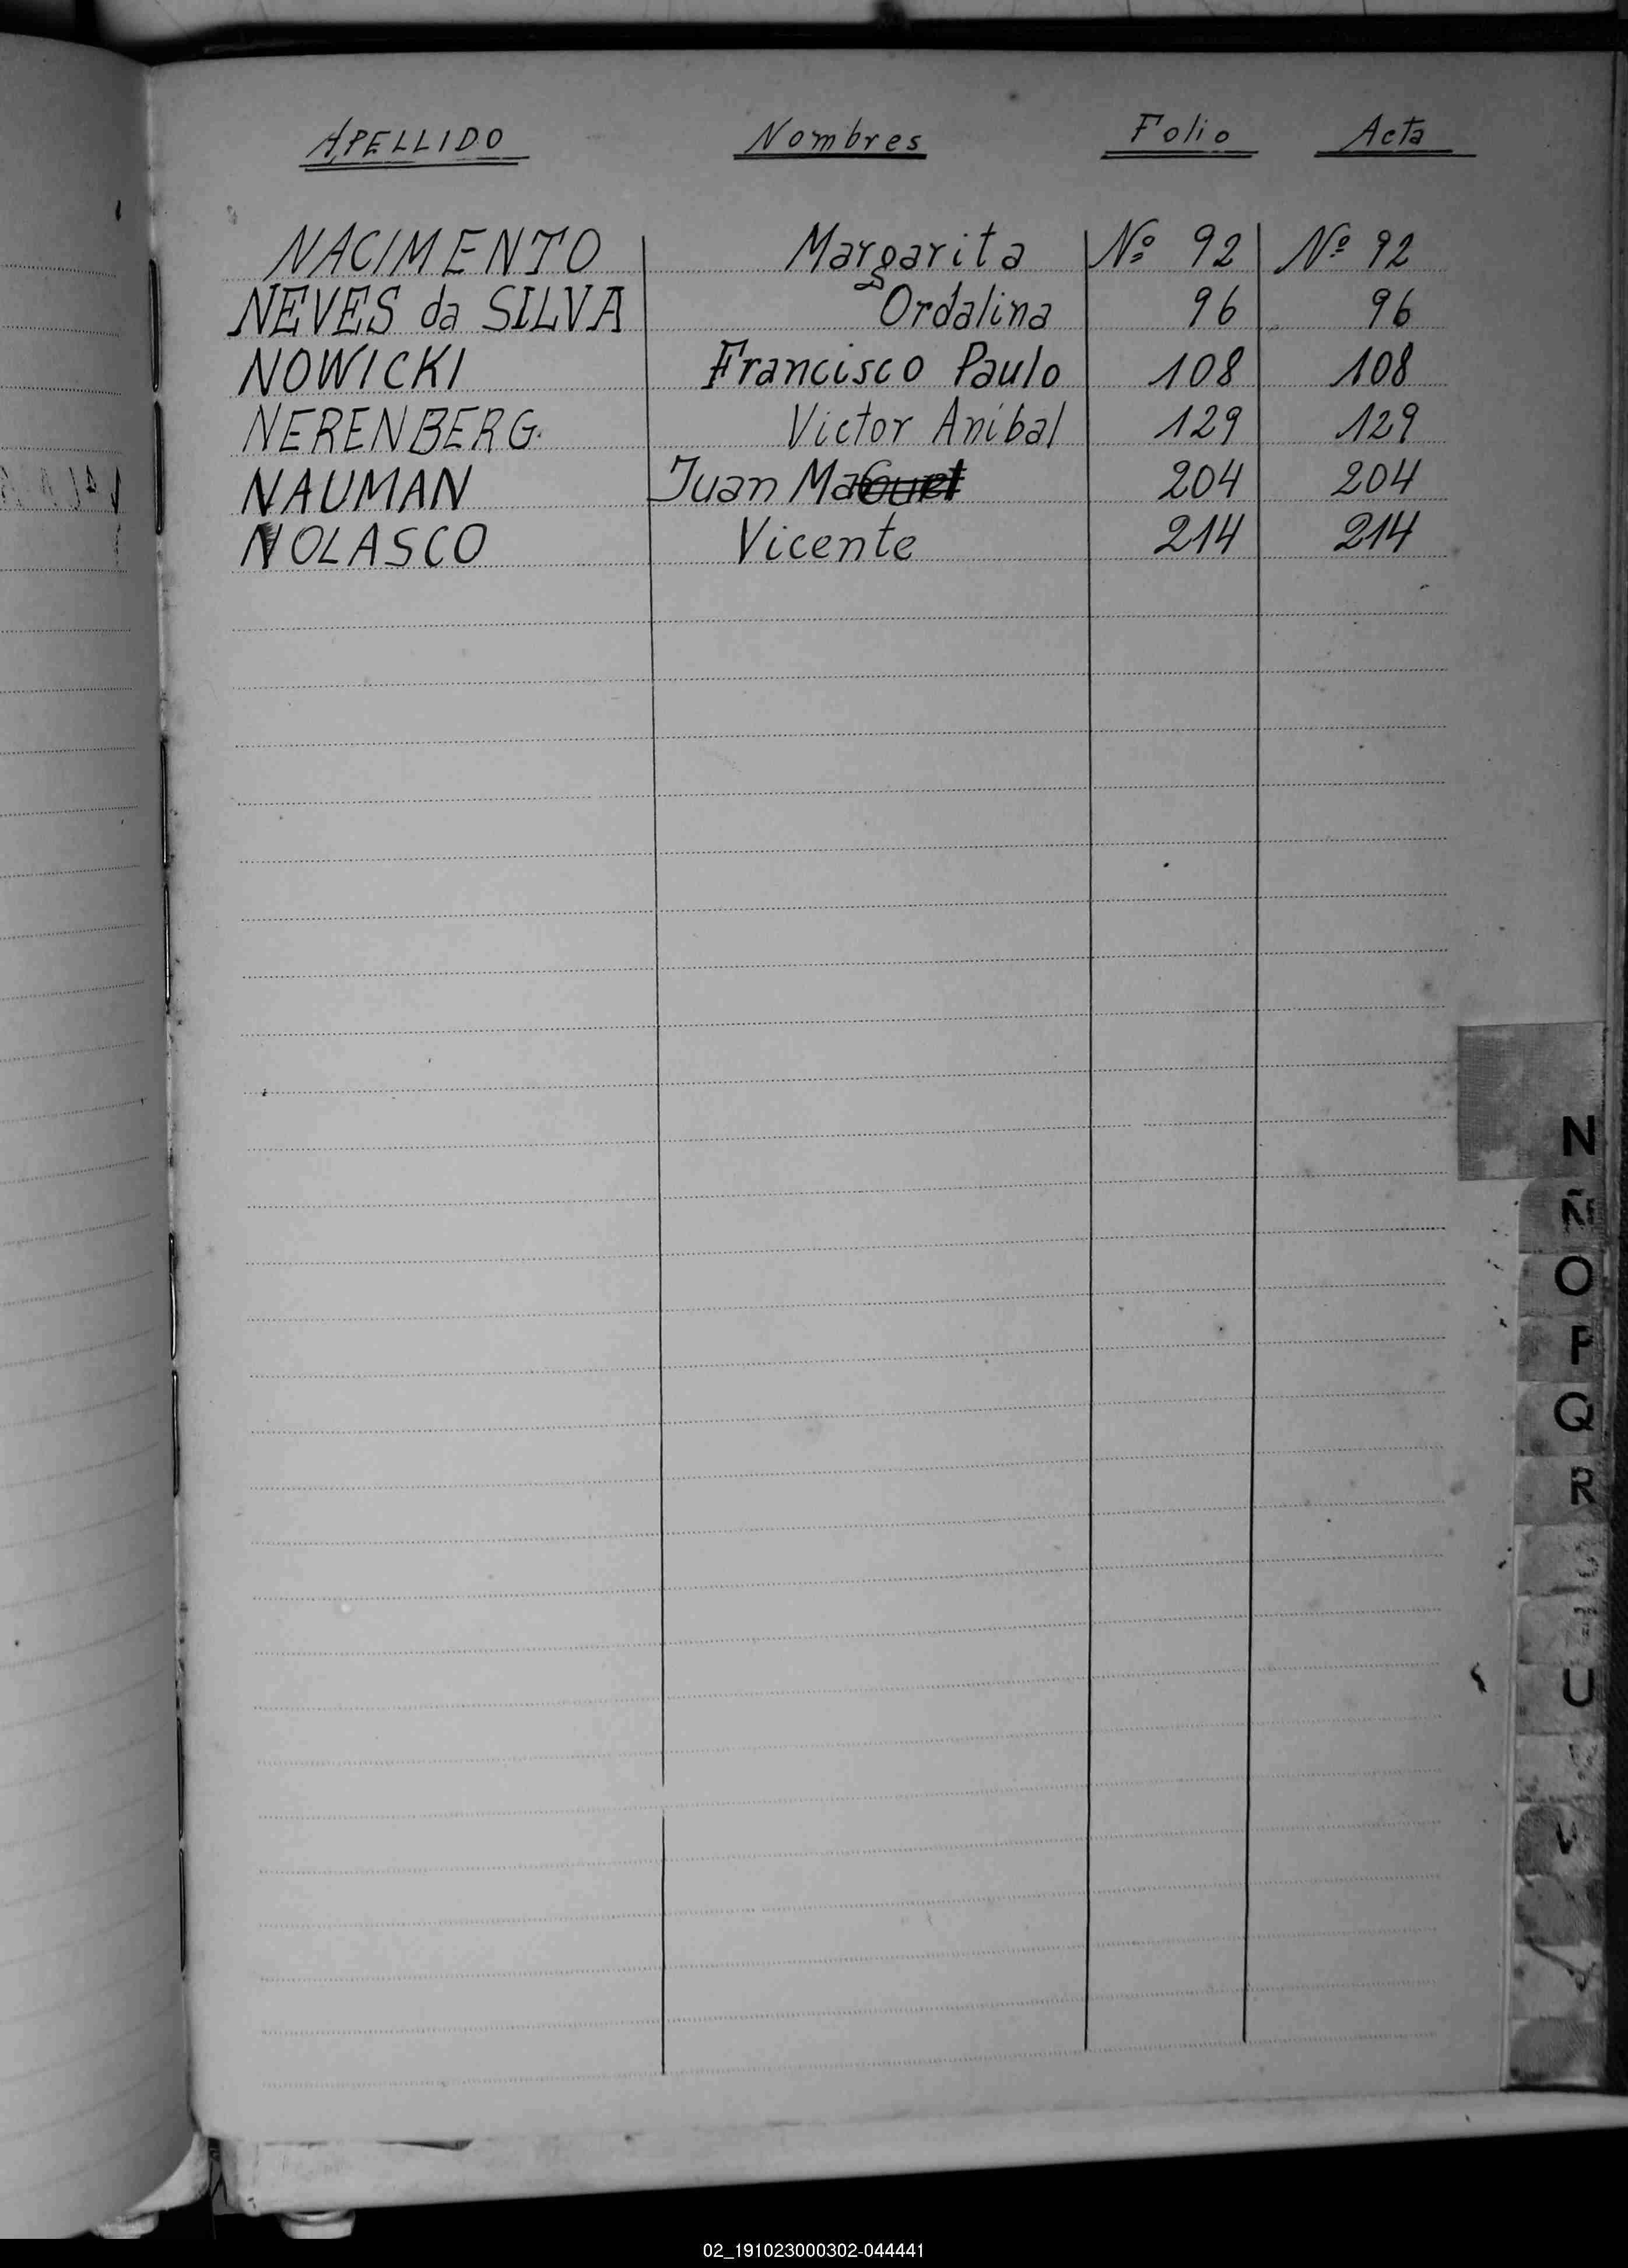 APELLIDO Nombres Folio Acta
NACIMENTO Margarita Nº 92 Nº 92
NEVES da SILVA Ordalina 96 96
NOWICKI Francisco Paulo 108 108
NERENBERG. Victor Anibal 129 129
NAUMAN Juan 204 204
NOLASCO Vicente 214 214
N
Ñ
O
P
Q
R
U
V
02_191023000302-044441